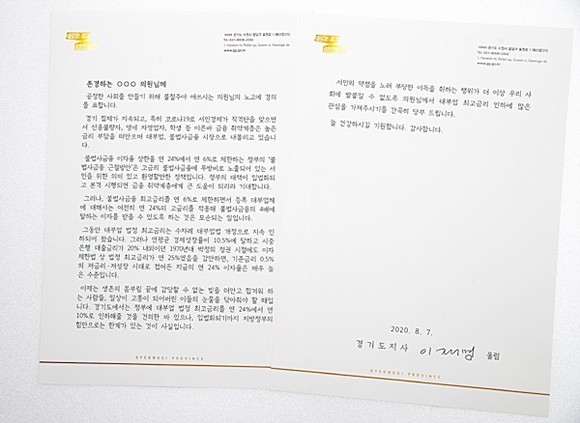 존경하는 ○○○ 의원님께
공정한 사회를 만들기 위해 불철주야 애쓰시는 의원님의 노고에 경의
를 표합니다.
경기 침체가 지속되고, 특히 코로나19로 서민경제가 직격탄을 맞으면
서 신용불량자, 영세 자영업자, 학생 등 이른바 금융 취약계층은 높은
금리 부담을 떠안으며 대부업, 불법사금융 시장으로 내몰리고 있습니
다.
불법사금융 이자율 상한을 연 24%에서 연 6%로 제한하는 정부의 '불
법사금융 근절방안'은 고리 불법사금융에 무방비로 노출되어 있는 서
민을 위한 의미 있고 환영할만한 정책입니다. 정부의 대책이 입법화되
고 본격 시행되면 금융 취약계층에게 큰 도움이 되리라 기대합니다.
그러나, 불법사금융 최고금리를 연 6%로 제한하면서 등록 대부업체
에 대해서는 여전히 연 24%의 고금리를 적용해 불법사금융의 4배에
달하는 이자를 받을 수 있도록 하는 것은 모순되는 일입니다.
그동안 대부업 법정 최고금리는 수차례 대부업법 개정으로 지속 인
하되어 왔습니다. 그러나 연평균 경제성장률이 10.5%에 달하고 시중
은행 대출금리가 20% 내외이던 1970년대 박정희 정권 시절에도 이자
제한법 상 법정 최고금리가 연 25%였음을 감안하면, 기준금리 0.5%
의 저금리·저성장 시대로 접어든 지금의 연 24% 이자율은 매우 높
은 수준입니다.
이제는 생존의 몸부림 끝에 감당할 수 없는 빚을 떠안고 힘겨워 하
는 사람들, 일상이 고통이 되어버린 이들의 눈물을 닦아줘야 할 때입
니다. 경기도에서는 정부에 대부업 법정 최고금리를 연 24%에서 연
10%로 인하해줄 것을 건의한 바 있으나, 입법화되기까지 지방정부의
힘만으로는 한계가 있는 것이 사실입니다.
GYEONGGI PROVINCE
서민의 약점을 노려 부당한 이득을 취하는 행위가 더 이상 우리 사
회에 발붙일 수 없도록 의원님께서 대부업 최고금리 인하에 많은
관심을 가져주시기를 간곡히 당부 드립니다.
늘 건강하시길 기원합니다. 감사합니다.
2020. 8. 7.
경기도지사 이재명 올림
GYEONGGI PROVINCE